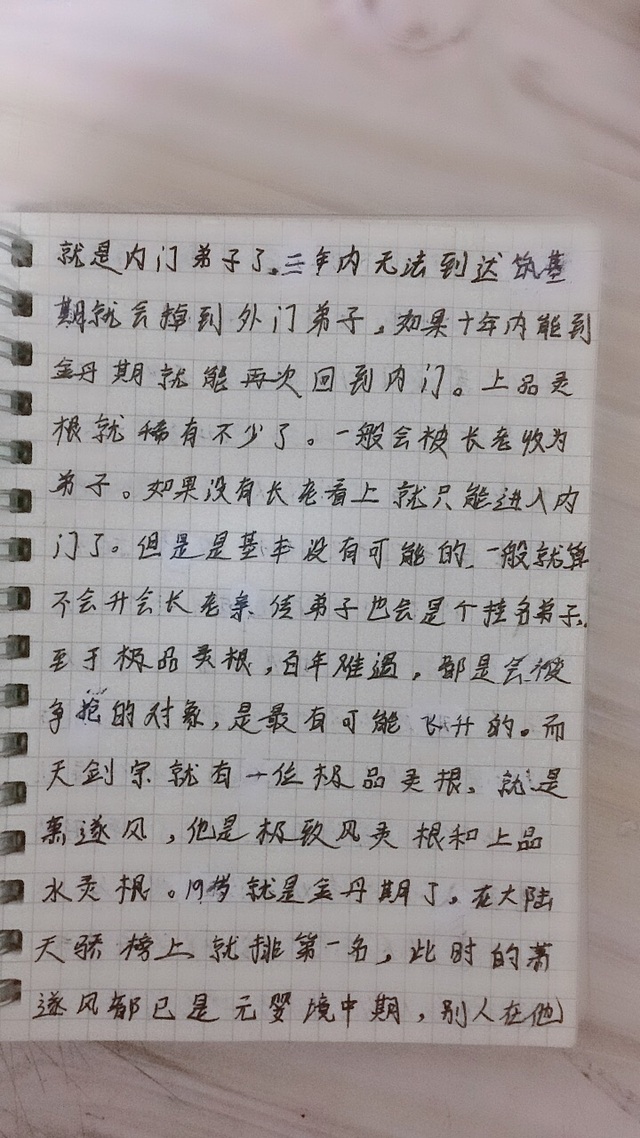 就是内门弟子了。三年内无法到达筑基
期就会掉到外门弟子，如果十年内能到
金丹期就能再次回到内门。上品灵
根就稀有不少了。一般会被长老收为
弟子。如果没有长老看上就只能进入内
门了。但是是基本没有可能的，一般就算
不会升会长老亲传弟子也会是个挂名弟子。
至于极品灵根，百年难遇，都是会被
争抢的对象，是最有可能飞升的。而
天剑宗就有一位极品灵根。就是
遂风，他是极致风灵根和上品
水灵根。19岁就是金丹期了。在大陆
天骄榜上就排第一名，此时的萧
遂风都已是元婴境中期，别人在他